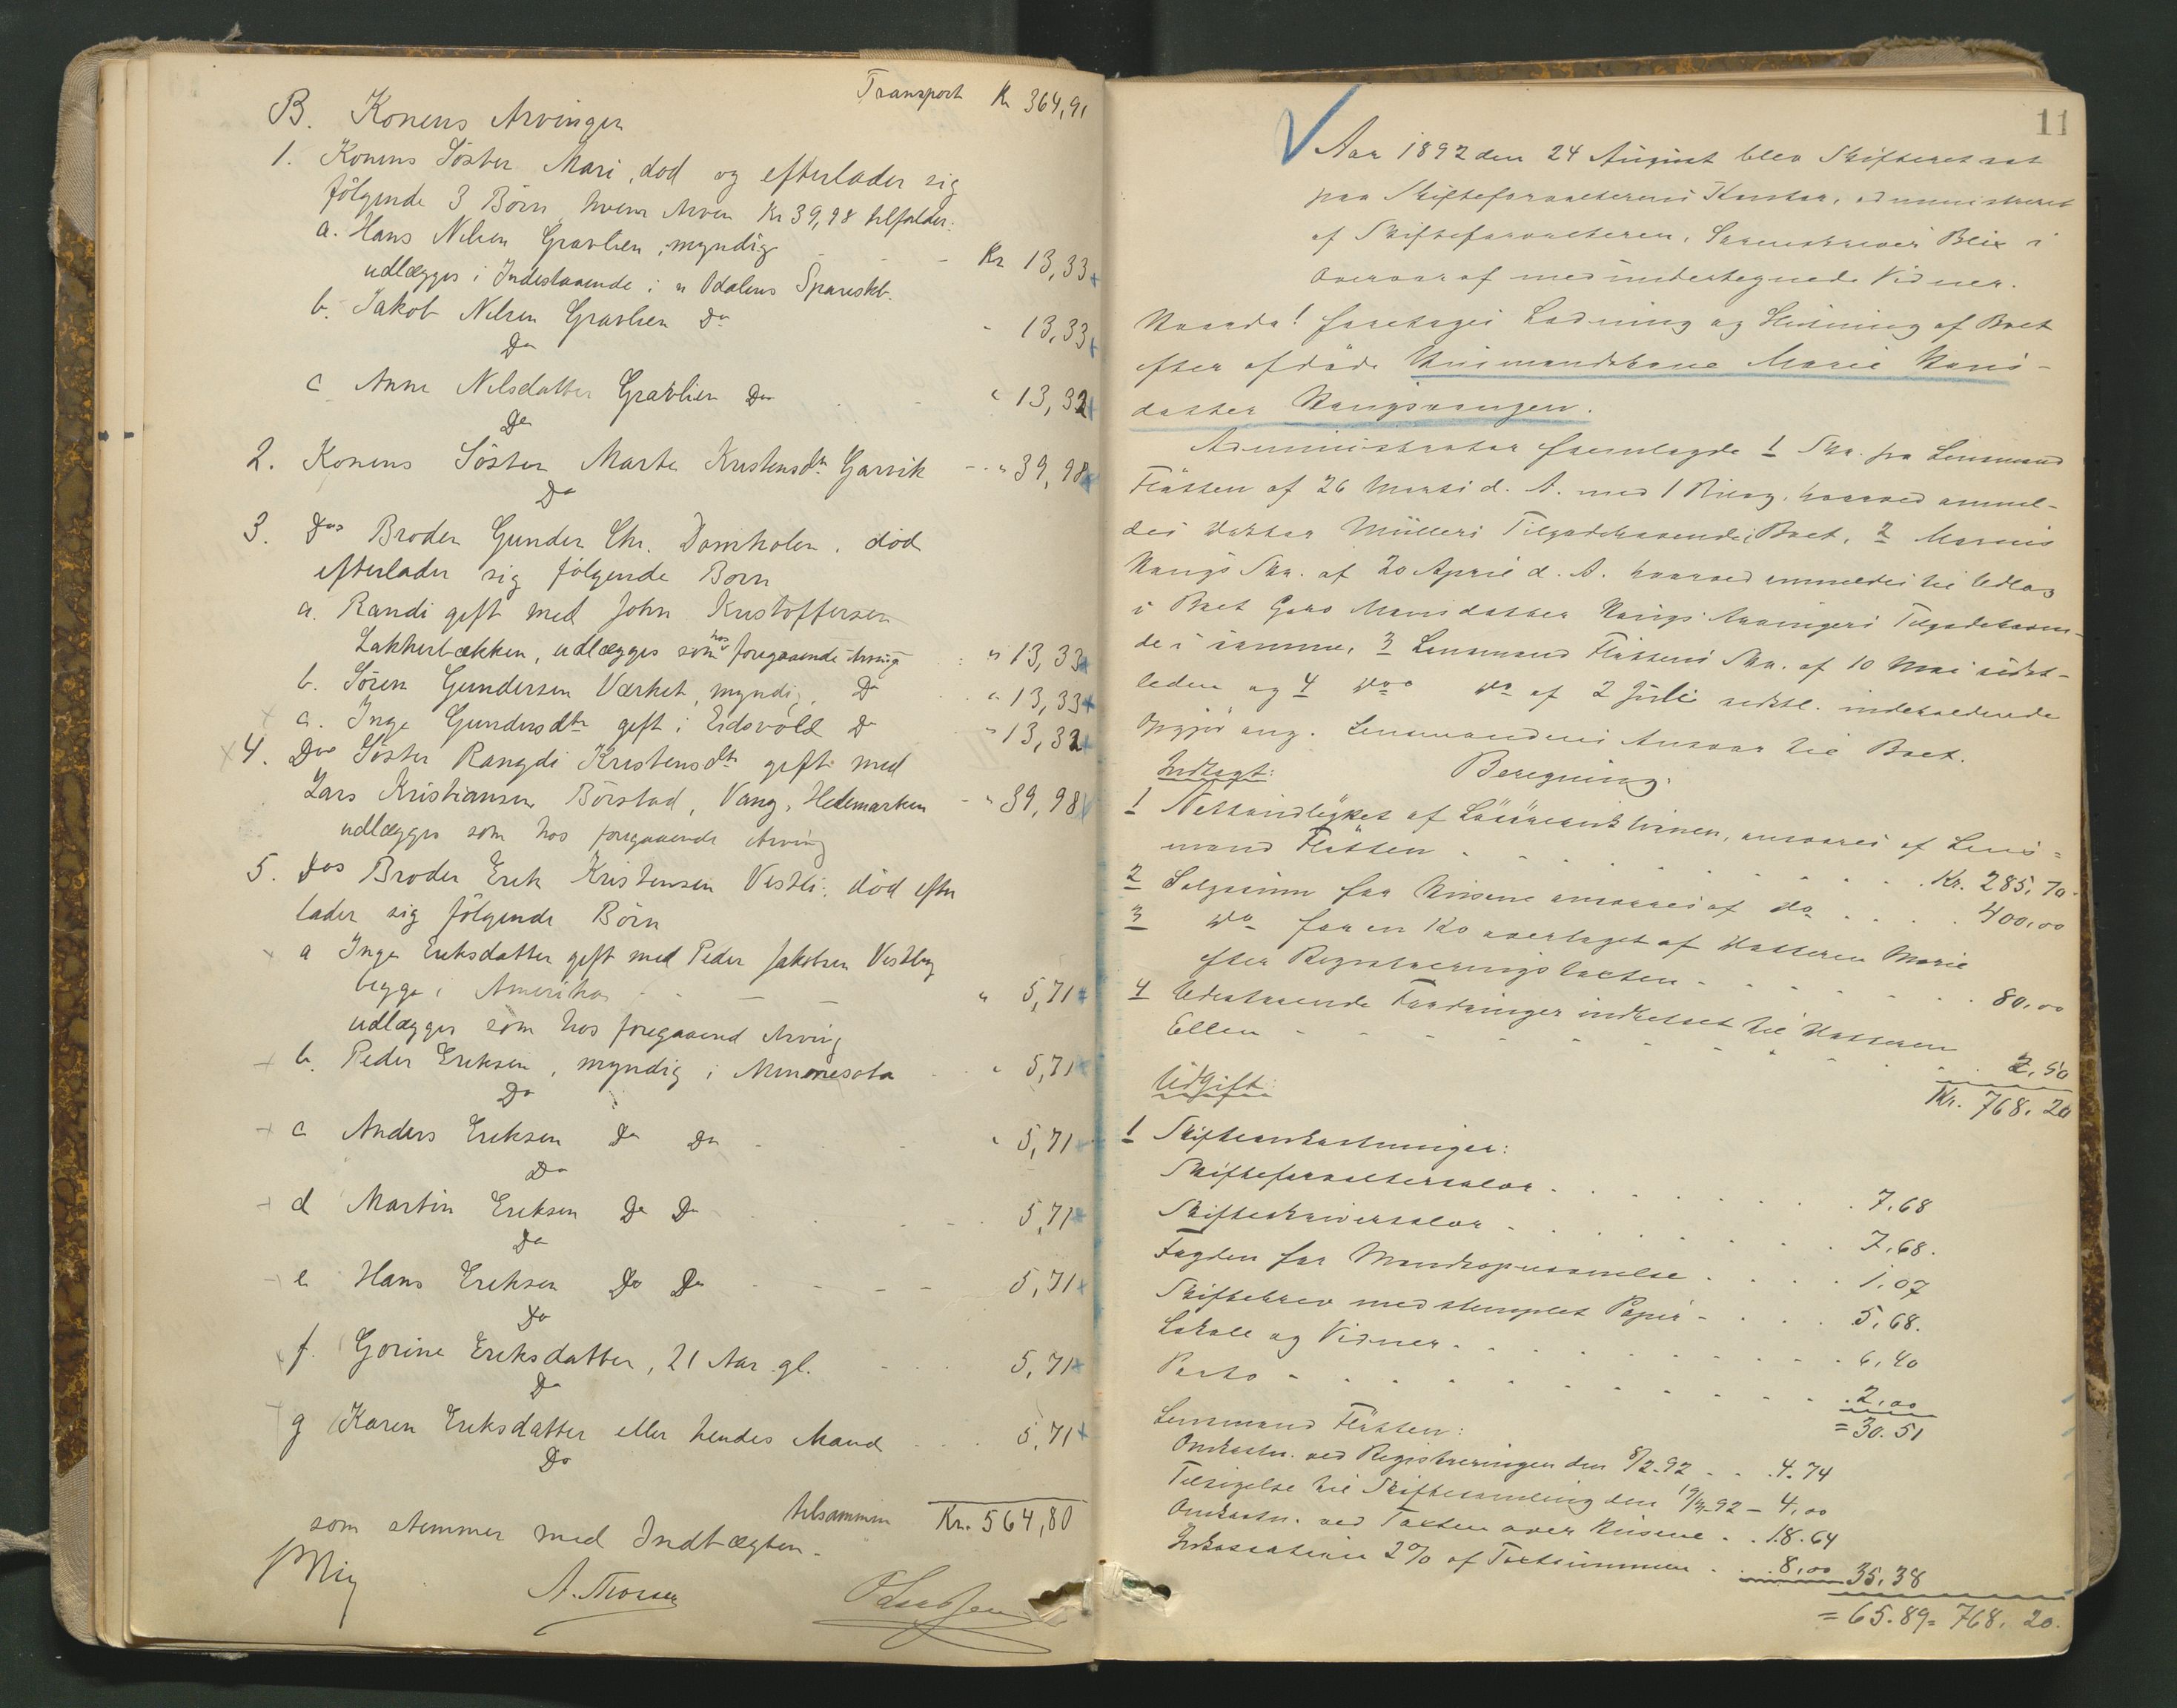 Transport Kr 364,91
B. Konens Arvinger
1. Konens Söster Mari, död og efterlader sig
følgende 3 Börn hvem Arven Kr 39,98 tilfalder:
a. Hans Nilsen Gravlien, myndig - - Kr 13,33
udlægges i Indestaaende i n Odalens Spareskb.
b. Jakob Nilsen Gravlien Do " 13,33
Do
c Anne Nilsdatter Gravlien Do " 13,32
Do
2. Konens Söster Marte Kristensdtr Garvik - " 39,98
Do
3. Dos Broder Gunder Chr. Damholen, död
efterlader sig følgende Börn
a. Randi gift med John Kristoffersen
Lakkerbækken, udlægges som hos foregaaende Arving " 13,33
b. Sören Gundersen Værket, myndig, Do " 13,33
c. Inge Gundersdtr gift i Eidsvold Do " 13,32
4. Dos Söster Rangdi Kristensdtr gift med
Lars Kristiansen Börstad, Vang, Hedemarken - " 39,98
udlægges som hos foregaaende Arving
5. Dos Broder Erik Kristensen Vestli, död efter
lader sig følgende Börn
a Inge Eriksdatter gift med Peder Jakobsen Vestby
begge i Amerika - - " 5,71
udlægges som hos foregaaend Arving
b. Peder Eriksen, myndig i Minnesota " 5,71
Do
c Anders Eriksen Do Do " 5,71
Do
d Martin Eriksen Do Do 5,71
Do
e Hans Eriksen Do Do 5,71
Do
f. Gorine Eriksdatter, 21 Aar gl. 5,71
Do
g Karen Eriksdatter eller hendes Mand 5,71
Do
tilsammen Kr. 564,80
som stemmer med Indtægten.
A. Thorsen
11
Aar 1892 den 24 August blev Skifteret sat
paa Skifteforvalterens Kontor, administreret
af Skifteforvalteren, Sorenskriver Blix i
Overvær af medundertegnede Vidner.
Hvorda! foretages Lodning og Slutning af Boet
efter afdöde Husmandskone Marie Hans-
datter Kongsvangen.
Administrator fremlagde 1 Skr. fra Lensmand
Flatten af 26 Marts d. A. med 1 Bilag, hvorved anmel-
des Doktor Müllers Tilgodehavende i Boet, 2 Marius
Haugs Skr. af 20 April d. A. hvorved anmeldes til Udlæg
i Boet Goro Monsdatter Haugs Arvingers Tilgodehaven-
de i samme, 3 Lensmand Flattens Skr. af 10 Mai sidst-
leden og 4 Dos Do af 2 Juli sidstl. indeholdende
Opgjör ang. Lensmandens Ansvar til Boet.
Indtægt: Beregning.
1 Nettoudbyttet af Lösöreauktionen, ansvares af Lens=
mand Flatten . . . . Kr. 285,70.
2 Salgssum for Husene ansvares af do . . . 400,00
3 Do for en Ko overtaget af Datteren Marie
efter Registreringstaxten . . . . 80,00
4 Udestaaende Fordringer indbetalt til Datteren
Ellen - - - - 2,50
Kr. 768,20
Udgift:
1 Skifteomkostninger:
Skifteforvaltersalær . . . . 7,68
Skifteskriversalær . . . . 7,68.
Fogden for 1,07
Skiftebrev med stemplet Papir - . . 5,68.
Lokale og Vidner . . . . 6,40
Porto - . . . . 2,00
= 30.51
Lensmand Flatten:
Omkostn. ved Registreringen den 8/2-92 . . 4.74
Tilsigelse til Skiftesamling den 19/3-92 - 4,00
Omkostn. ved Taxten over Husene . . 18.64
Inkassation 2% af Taxtsummen . . 8,00 35,38
= 65.89 = 768,20.